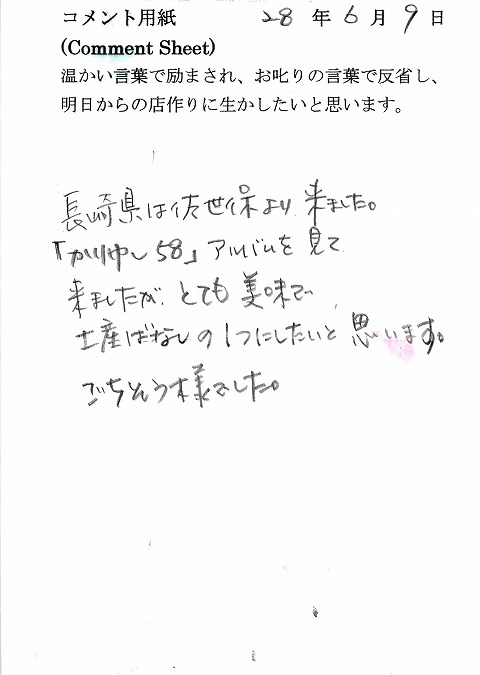 コメント用紙 28 年 6 月 9 日
(Comment Sheet)
温かい言葉で励まされ、お叱りの言葉で反省し、
明日からの店作りに生かしたいと思います。
長崎県は佐世保より来ました。
「かりゆし58」アルバムを見て
来ましたが、とても美味で、
土産ばなしの1つにしたいと思います。
ごちそう様でした。